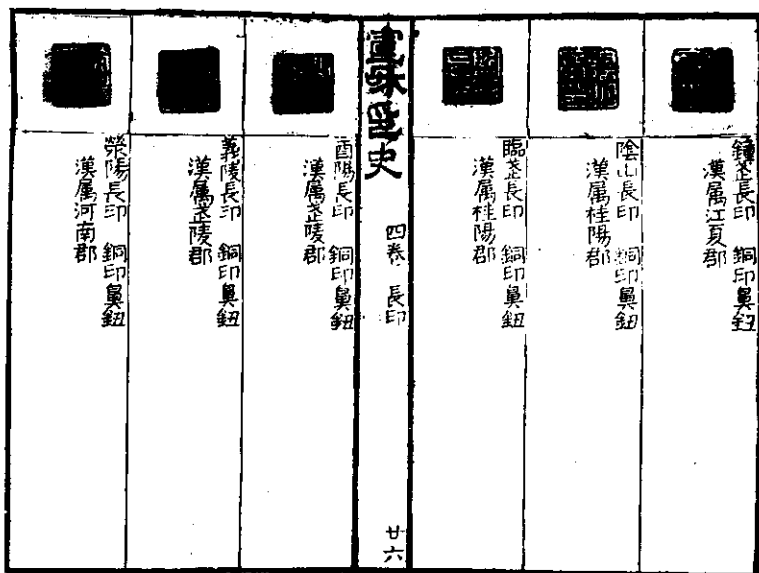 鍾武長印　銅印鼻鈕
漢属江夏郡
陰山長印　銅印鼻鈕
漢属桂陽郡
臨武長印　銅印鼻鈕
漢属桂陽郡
宣和印史　四卷　長印　廿六
酉陽長印　銅印鼻鈕
漢属武陵郡
義陵長印　銅印鼻鈕
漢属武陵郡
滎陽長印　銅印鼻鈕
漢属河南郡